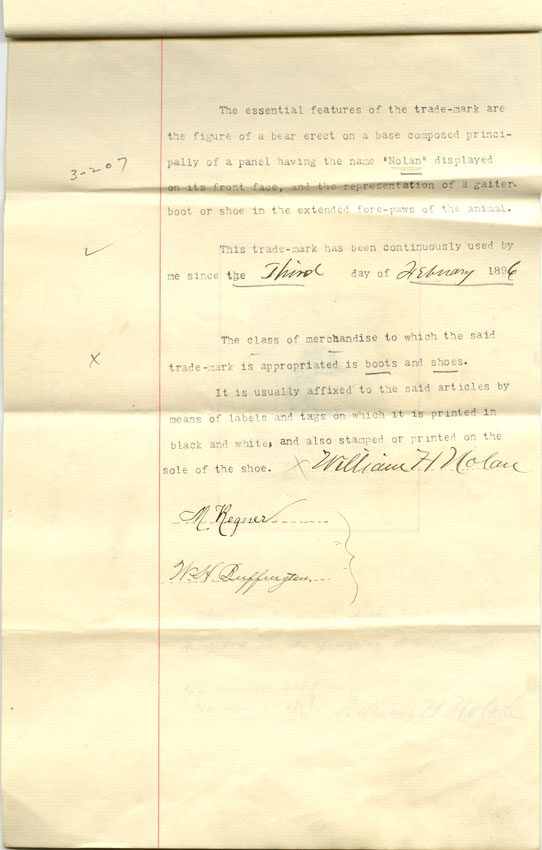 The essential features of the trade-mark are
the figure of a bear erect on a base composed princi-
pally of a panel having the name "Nolan" displayed
3-207
on its front face, and the representation of a gaiter
boot or shoe in the extended fore-paws of the animal.
✓ This trade-mark has been continuously used by
me since the Third day of February 1896
The class of merchandise to which the said
X trade-mark is appropriated is boots and shoes.
It is usually affixed to the said articles by
means of labels and tags on which it is printed in
black and white, and also stamped or printed on the
sole of the shoe. X William H Nolan
M Regner
W. H. Buffington
William H Nolan